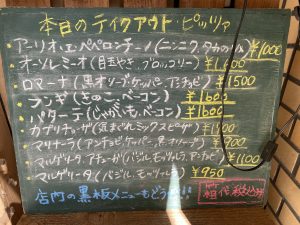 本日のテイクアウト・ピッツァ
アーリオ・エ・ペペロンチーノ(ニンニク、タカのツメ) ¥1000
オーソレミーオ(目玉やき、ブロッコリー) ¥1,400
ロマーナ(黒オリーブ、ケッパー、アンチョビ) ¥1500
フンギ(きのこ、ベーコン) ¥1600
パターテ(じゃがいも、ベーコン) ¥1600
カプリチョーザ(気まぐれミックスピザ) ¥
マリナーラ(アンチョビ、ケッパー、黒オリーブ) ¥900
マルゲリータ、アチューガ(バジル、モッツァレラ、アンチョビ) ¥1100
マルゲリータ(バジル、モッツァレラ) ¥950
店内の黒板メニューもどうぞ!!
箱代 税込み